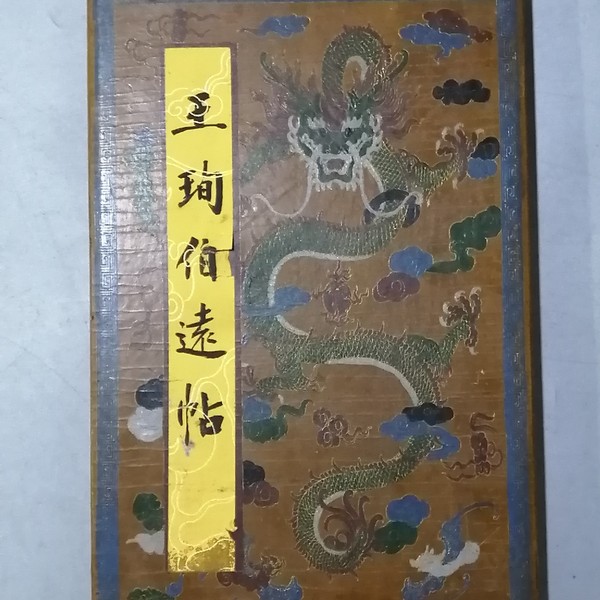 王珣伯遠帖